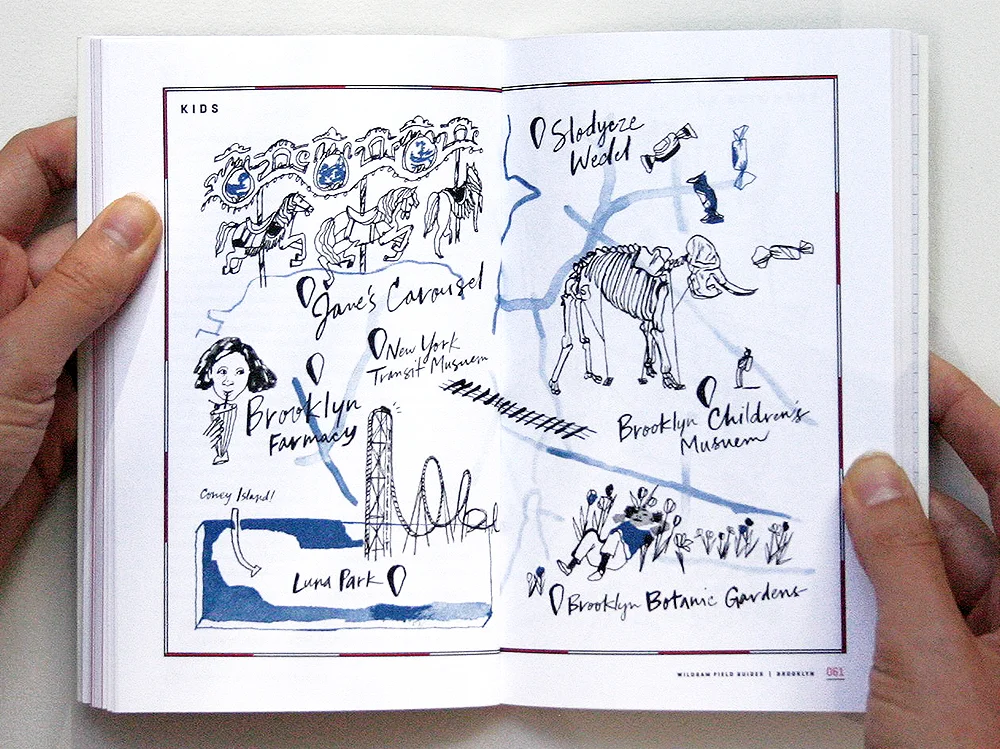 KIDS
Jane's Carousel
New York
Transit Musuem
Brooklyn
Farmacy
Coney Island!
Luna Park
Slodycze
Wedel
Brooklyn Children's
Musuem
Brooklyn Botanic Gardens
WILDSAM FIELD GUIDES | BROOKLYN 061